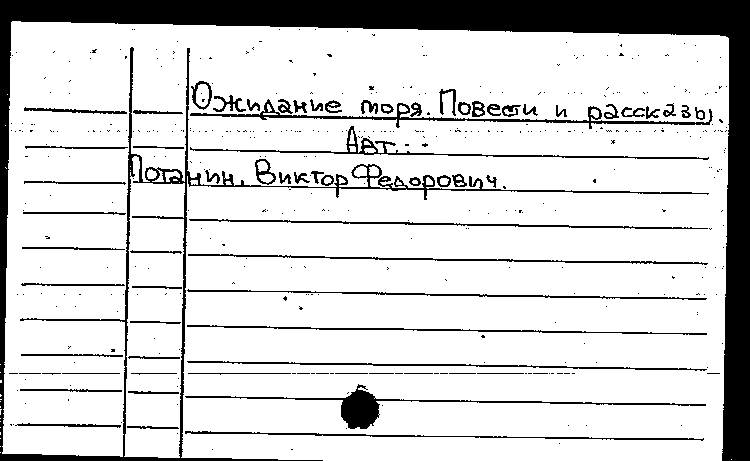 Ожидание моря. Повести и рассказы.
Авт.:
Потанин, Виктор Федорович.